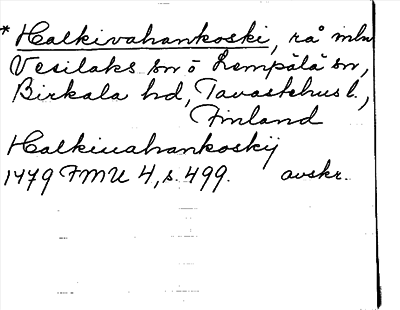 * Halkivahankoski, rå mln
Vesilaks sn o Lempälä sn,
Birkala hd, Tavastehus l.,
Finland
Halkiuahankoskij
1479 FMU 4, s. 499. avskr.